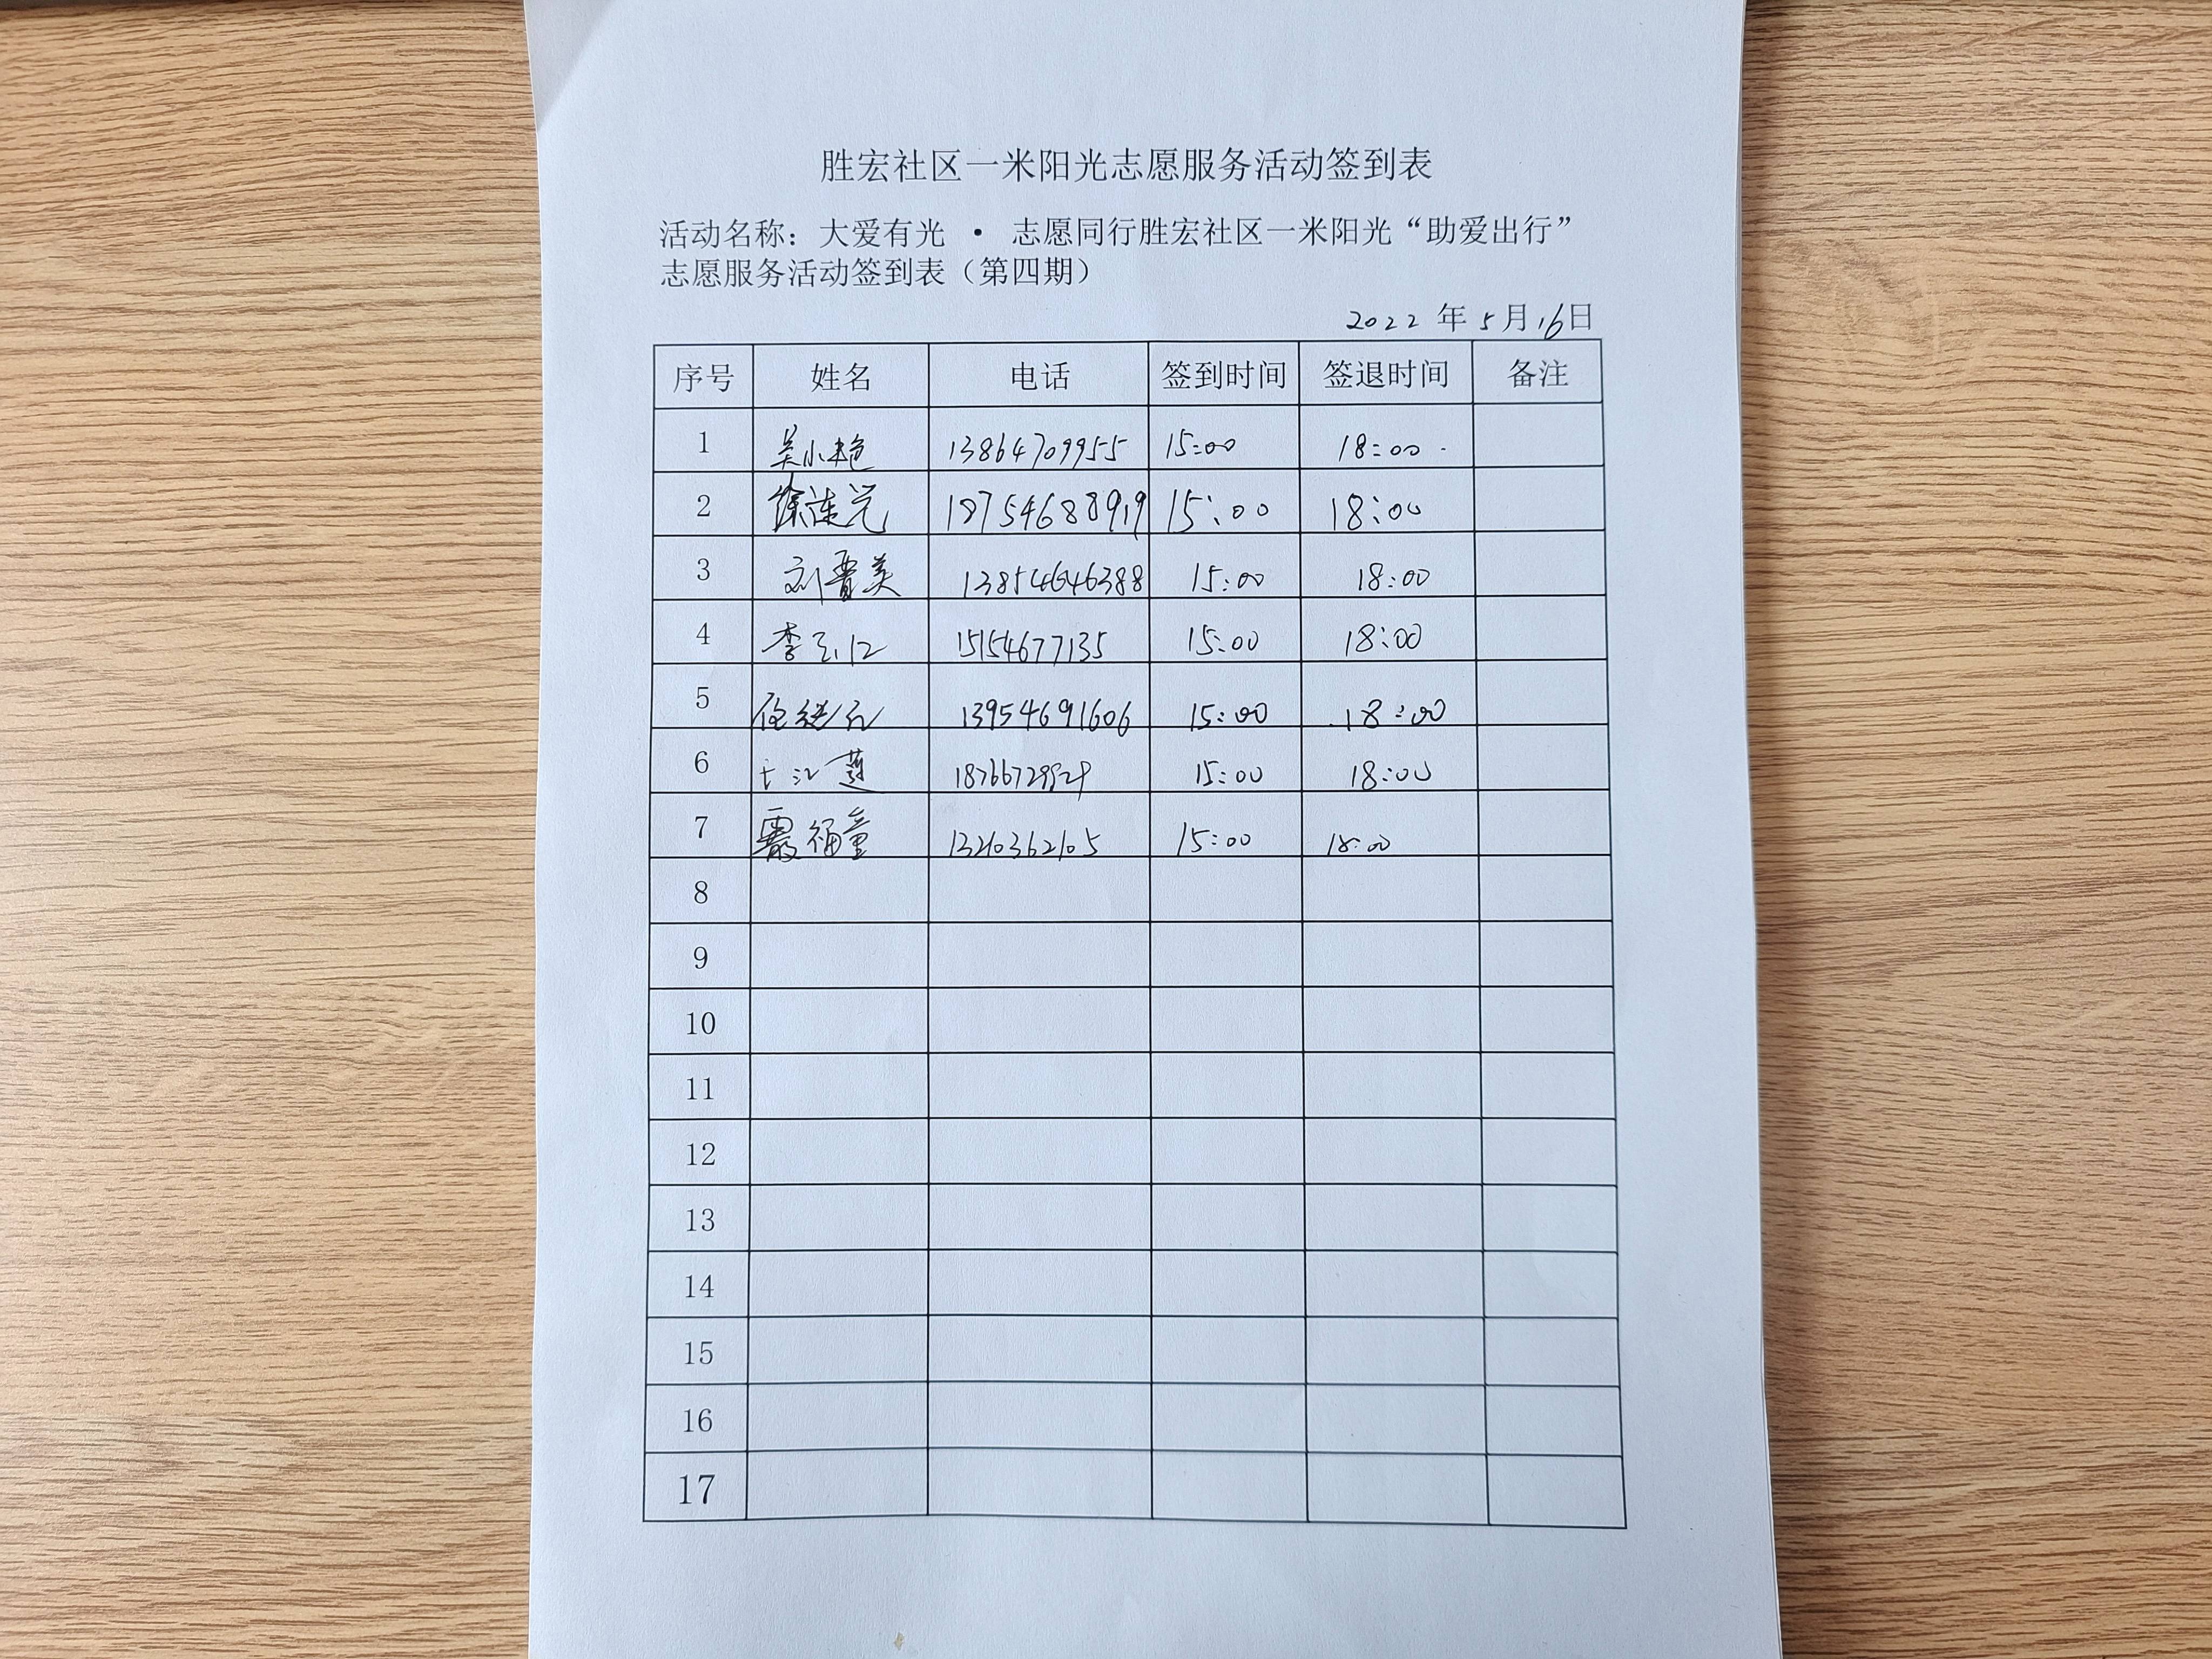 胜宏社区一米阳光志愿服务活动签到表
活动名称：大爱有光 · 志愿同行胜宏社区一米阳光“助爱出行”
志愿服务活动签到表（第四期）
2022 年 5 月 16 日
序号 姓名 电话 签到时间 签退时间 备注
1 吴小艳 13864709955 15:00 18:00
2 徐连光 18754688919 15:00 18:00
3 刘晋美 13854646388 15:00 18:00
4 李 15154677135 15:00 18:00
5 13954691606 15:00 18:00
6 15:00 18:00
7 福童 13210362105 15:00 18:00
8
9
10
11
12
13
14
15
16
17